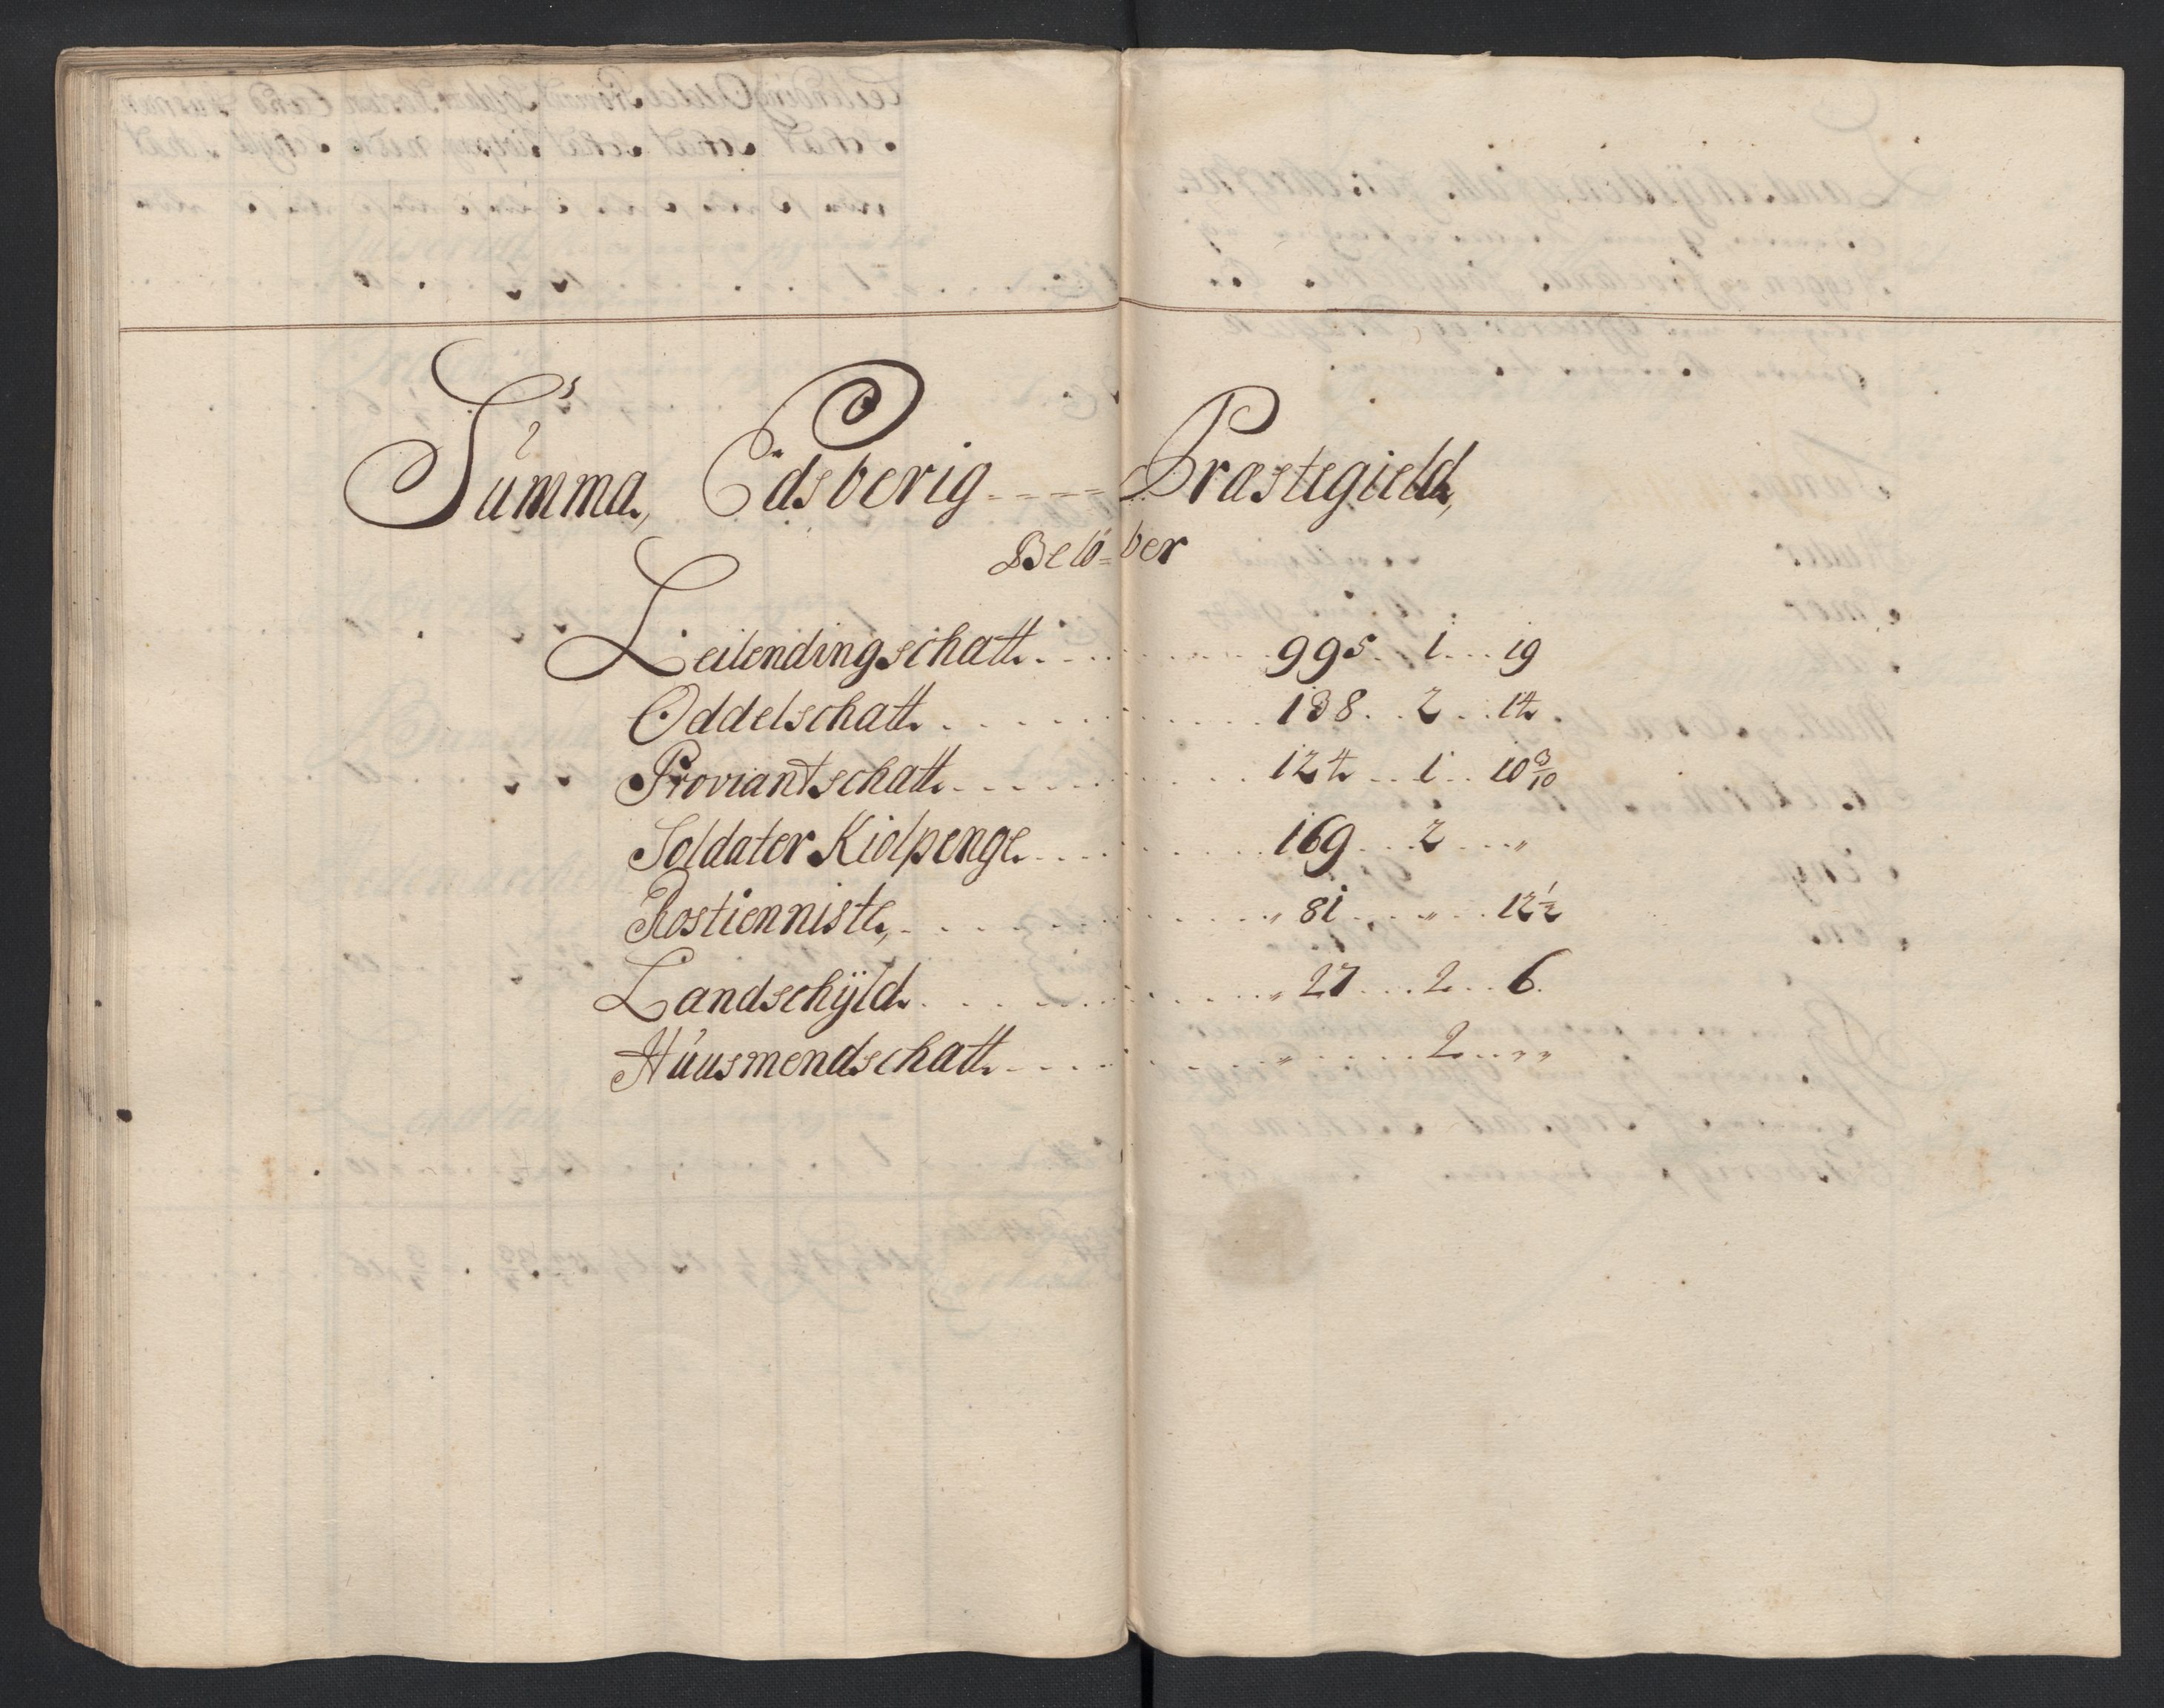 Summa, Edsberig - - - - Præstegield,
Belö=ber
Leilendingschatt. . . . 995. . 1 . . . 19
Oddelschatt. . . . 138. . 2 . . 14
Proviantschatt. . . . 124 . . 1 . . 10 3/10
Soldater Kiolpenge . . . . 169 . . 2 . . . „
Rostienniste, . . . . „ 81 . . . „ . . 12 1/2
Landschÿld . . . . „ 27 . . . 2 . . 6.
Huusmendschatt . . . . „ . . . . 2 . . „ „